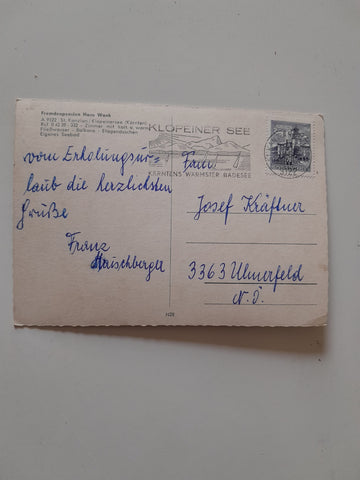 Fremdenpension Haus Wank
A 9122 St. Kanzian, Klopeinersee (Kärnten)
Ruf 0 42 39 - 332 - Zimmer mit kalt u. warm
Fließwasser - Balkone - Etagenduschen
Eigenes Seebad
KLOPEINER SEE
KÄRNTENS WÄRMSTER BADESEE
vom Erholungsur-
laub die herzlichsten
Grüße
Franz
Maischberger
Fam
Josef Kräftner
3363 Ulmerfeld
N.Ö.